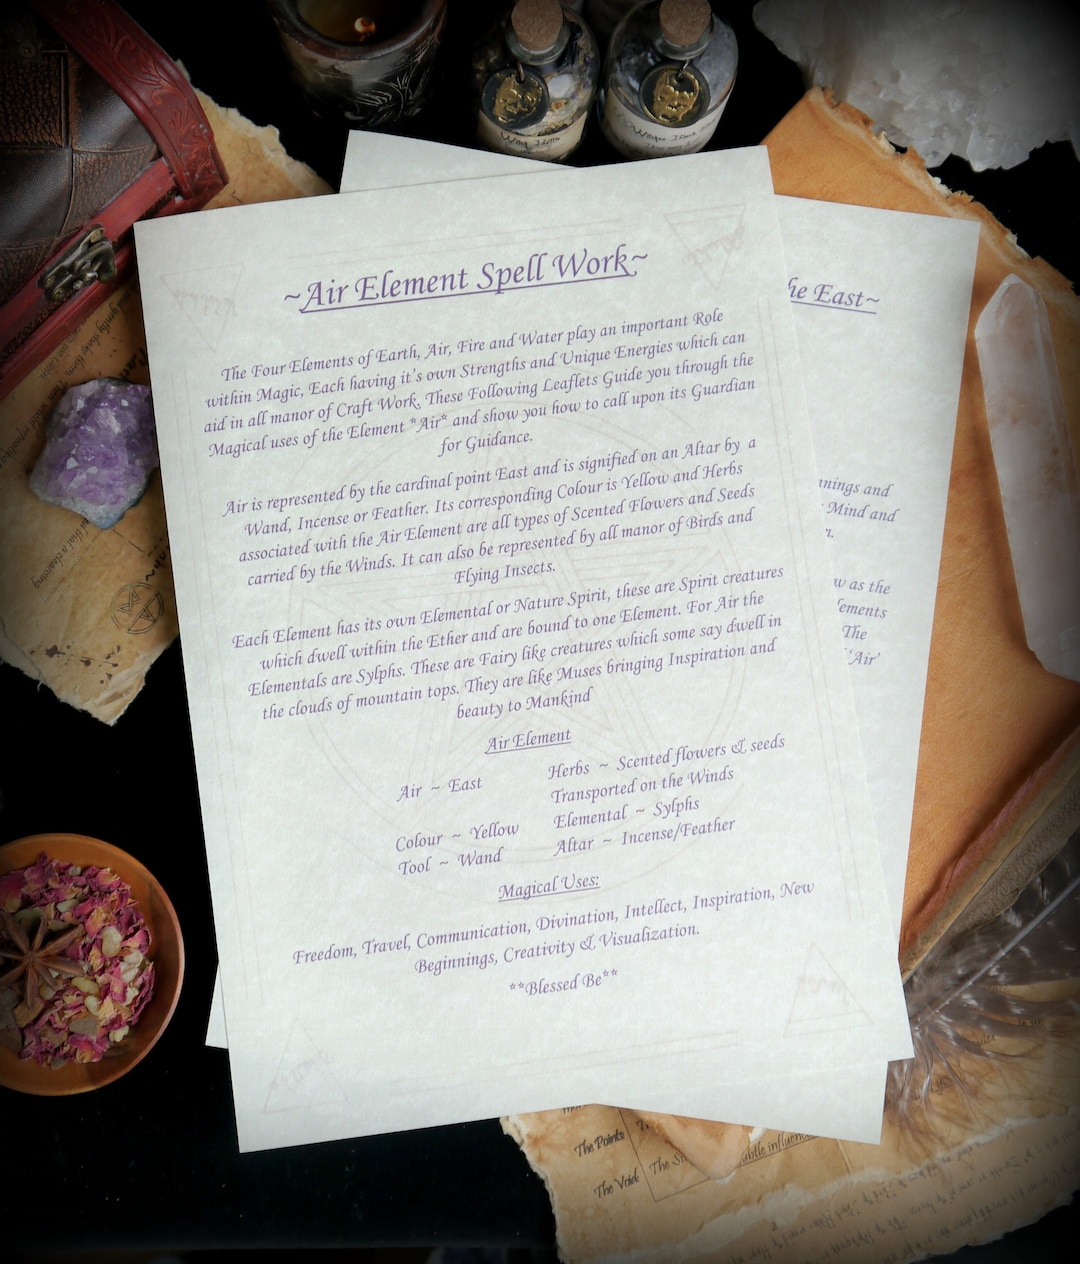 ~Air Element Spell Work~
The Four Elements of Earth, Air, Fire and Water play an important Role
within Magic, Each having it's own Strengths and Unique Energies which can
aid in all manor of Craft Work. These Following Leaflets Guide you through the
Magical uses of the Element *Air* and show you how to call upon its Guardian
for Guidance.
Air is represented by the cardinal point East and is signified on an Altar by a
Wand, Incense or Feather. Its corresponding Colour is Yellow and Herbs
associated with the Air Element are all types of Scented Flowers and Seeds
carried by the Winds. It can also be represented by all manor of Birds and
Flying Insects.
Each Element has its own Elemental or Nature Spirit, these are Spirit creatures
which dwell within the Ether and are bound to one Element. For Air the
Elementals are Sylphs. These are Fairy like creatures which some say dwell in
the clouds of mountain tops. They are like Muses bringing Inspiration and
beauty to Mankind
Air Element
Air ~ East
Colour ~ Yellow
Tool ~ Wand
Herbs ~ Scented flowers & seeds
Transported on the Winds
Elemental ~ Sylphs
Altar ~ Incense/Feather
Magical Uses:
Freedom, Travel, Communication, Divination, Intellect, Inspiration, New
Beginnings, Creativity & Visualization.
**Blessed Be**
he East~
nings and
Mind and
w as the
lements
The
'Air'
The Points:
The Void: